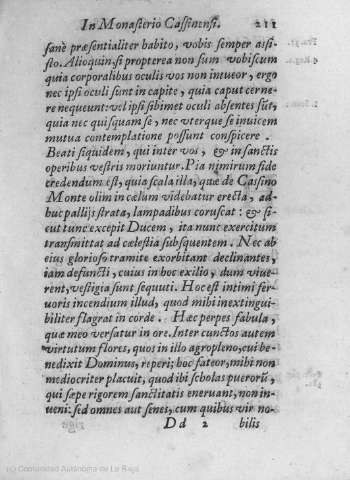 In Monasterio Cassinensi. 211
sanè præsentialiter habito, vobis semper assi-
sto. Alioquin, si propterea non sum vobiscum
quia corporalibus oculis vos non intueor, ergo
nec ipsi oculi sunt in capite, quia caput cerne-
re nequeunt: vel ipsi sibimet oculi absentes sũt,
quia nec quisquam se, nec vterque se inuicem
mutua contemplatione possunt conspicere.
Beati siquidem, qui inter vos, & in sanctis
operibus vestris moriuntur. Pia nimirum fide
credendum est, quia scala illa, quæ de Cassino
Monte olim in cælum videbatur erecta, ad-
huc pallijs strata, lampadibus coruscat: & si-
cut tunc excepit Ducem, ita nunc exercitum
transmittat ad cælestia subsquentem. Nec ab
eius glorioso tramite exorbitant declinantes,
iam defuncti, cuius in hoc exilio, dum viue-
rent, vestigia sunt sequuti. Hoc est intimi fer-
uoris incendium illud, quod mihi inextingui-
biliter flagrat in corde. Hæc perpes fabula,
quæ meo versatur in ore. Inter cunctos autem
virtutum flores, quos in illo agro pleno, cui be-
nedixit Dominus, reperi; hoc fateor, mihi non
mediocriter placuit, quod ibi scholas puerorũ,
qui sæpe rigorem sanctitatis eneruant, non in-
ueni: sed omnes aut senes, cum quibus vir no-
Dd 2 bilis
(c) Comunidad Autónoma de La Rioja